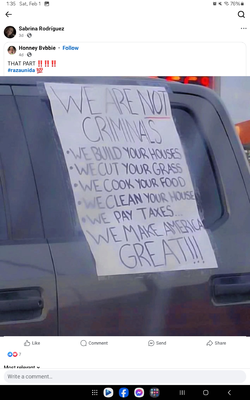 1:35 Sat, Feb 1
70%
Sabrina Rodriguez
Honney Bvbbie · Follow
THAT PART ‼️‼️‼️
#razaunida 💯
WE ARE NOT
CRIMINALS
• WE BUILD YOUR HOUSES
• WE CUT YOUR GRASS
• WE COOK YOUR FOOD
• WE CLEAN YOUR HOUSE
• WE PAY TAXES...
WE MAKE AMERICA
GREAT!!!
Like Comment Send Share
7
Most relevant
Write a comment...